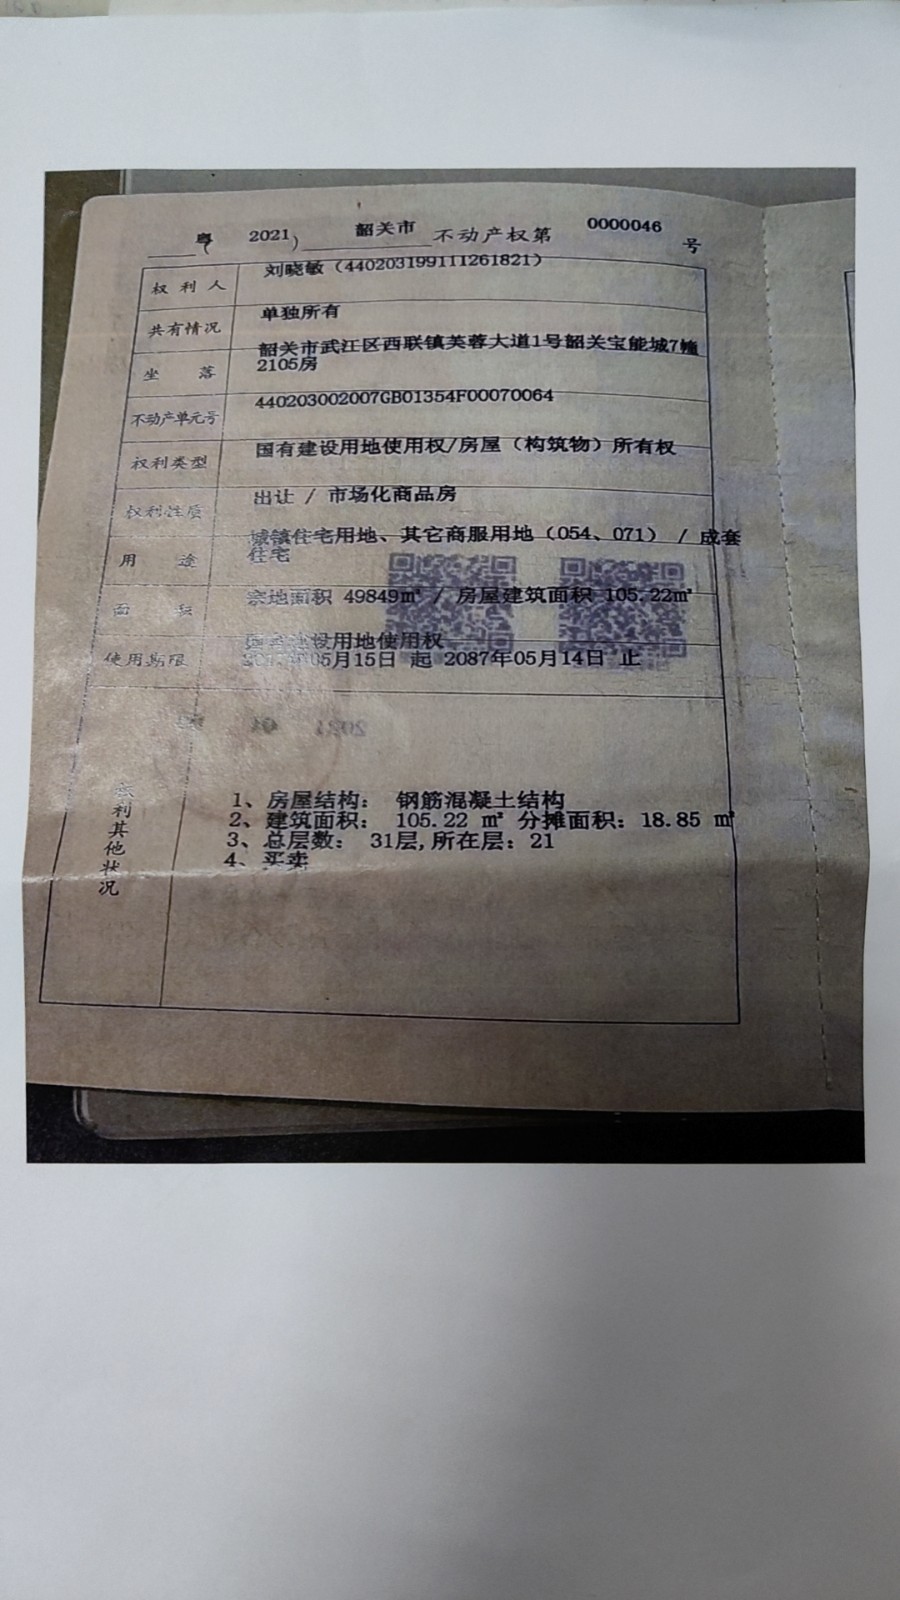 粤（ 2021） 韶关市 不动产权第 0000046 号
权利人 刘晓敏（440203199111261821）
共有情况 单独所有
坐落 韶关市武江区西联镇芙蓉大道1号韶关宝能城7幢
2105房
不动产单元号 440203002007GB01354F00070064
权利类型 国有建设用地使用权/房屋（构筑物）所有权
权利性质 出让 / 市场化商品房
用途 城镇住宅用地、其它商服用地（054、071） / 成套
住宅
面积 宗地面积 49849㎡ / 房屋建筑面积 105.22㎡
设用地使用权
使用期限 05月15日 起 2087年05月14日 止
权利其他状况
1、房屋结构： 钢筋混凝土结构
2、建筑面积： 105.22 ㎡ 分摊面积：18.85 ㎡
3、总层数： 31层,所在层：21
4、买卖